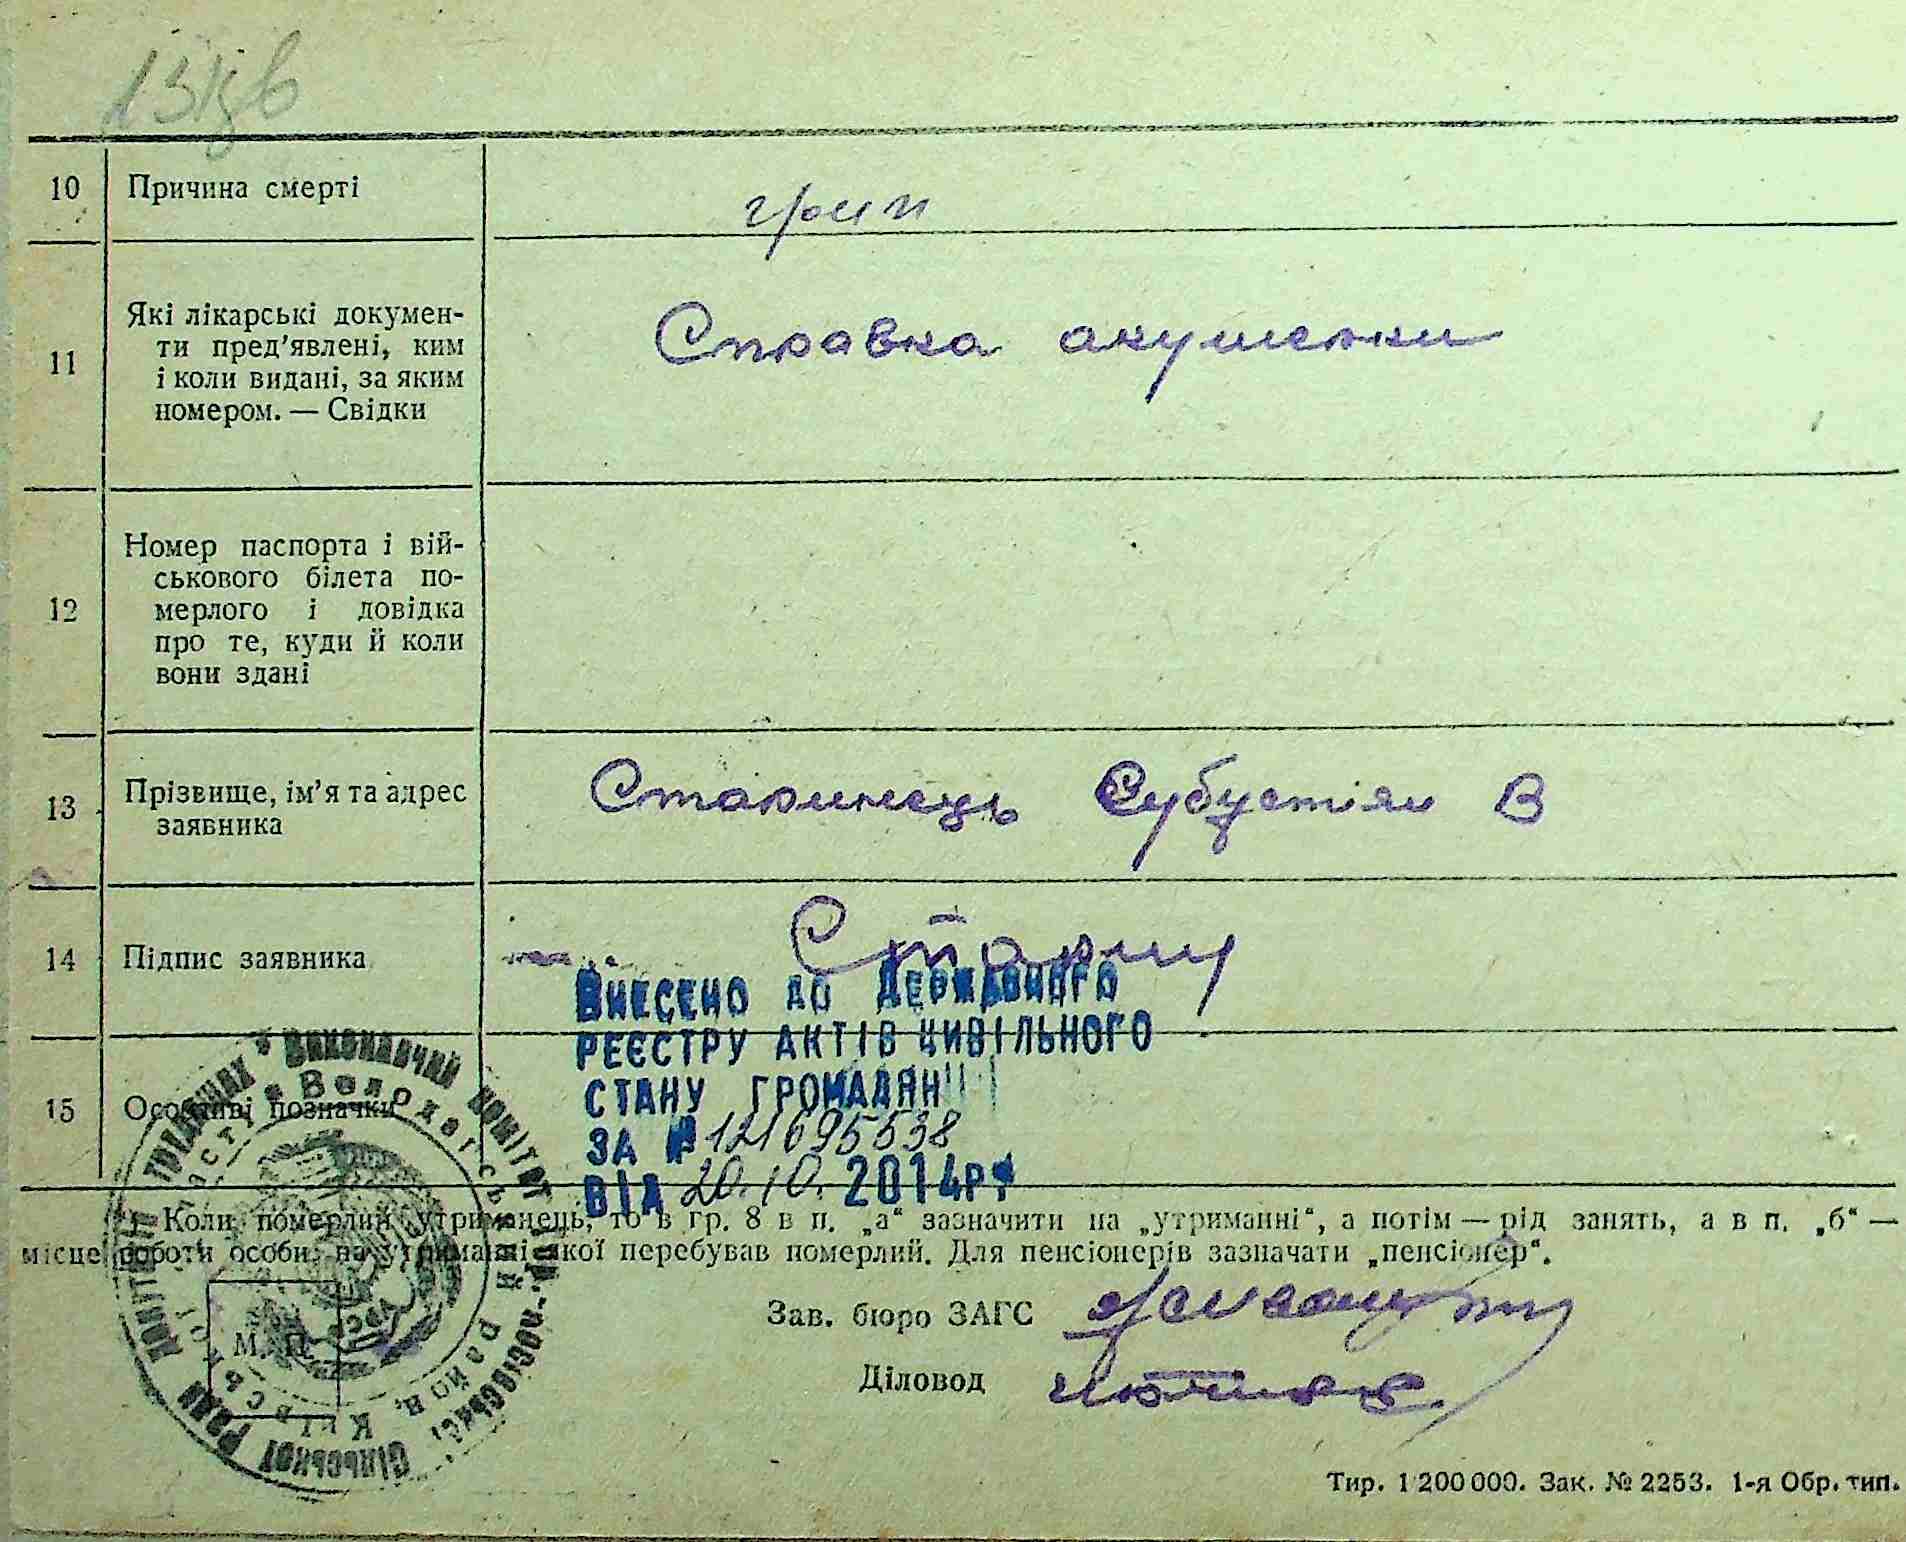 10 Причина смерті грип
11 Які лікарські докумен-
ти пред'явлені, ким
і коли видані, за яким
номером. — Свідки
Справка акушерки
12 Номер паспорта і вій-
ськового білета по-
мерлого і довідка
про те, куди й коли
вони здані
13 Прізвище, ім'я та адрес
заявника
Старинець Субустіян В
14 Підпис заявника
Внесено до Державного
реєстру актів цивільного
15 Особливі позначки
стану громадян
за № 121695538
від 20.10.2014р.
Коли померлий утриманець, то в гр. 8 в п. „а“ зазначити на „утриманні“, а потім — рід занять, а в п. „б“ —
місце роботи особи, на утриманні якої перебував померлий. Для пенсіонерів зазначати „пенсіонер“.
Зав. бюро ЗАГС
М. П.
Діловод
Виконавчий комітет
сільської Ради
Володарський район, Київської
УРСР
Тир. 1 200 000. Зак. № 2253. 1-я Обр. тип.